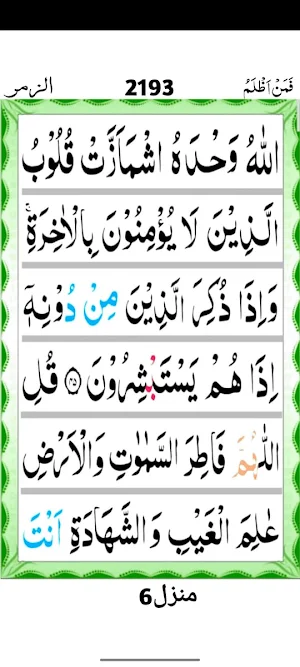 الزمر 2193 فَمَنْ اَظْلَمُ
اللّٰهُ وَحْدَهُ اشْمَاَزَّتْ قُلُوْبُ
الَّذِيْنَ لَا يُؤْمِنُوْنَ بِالْاٰخِرَةِ ۚ
وَاِذَا ذُكِرَ الَّذِيْنَ مِنْ دُوْنِهٖۤ
اِذَا هُمْ يَسْتَبْشِرُوْنَ ۝۴۵ قُلِ
اللّٰهُمَّ فَاطِرَ السَّمٰوٰتِ وَالْاَرْضِ
عٰلِمَ الْغَيْبِ وَالشَّهَادَةِ اَنْتَ
منزل6